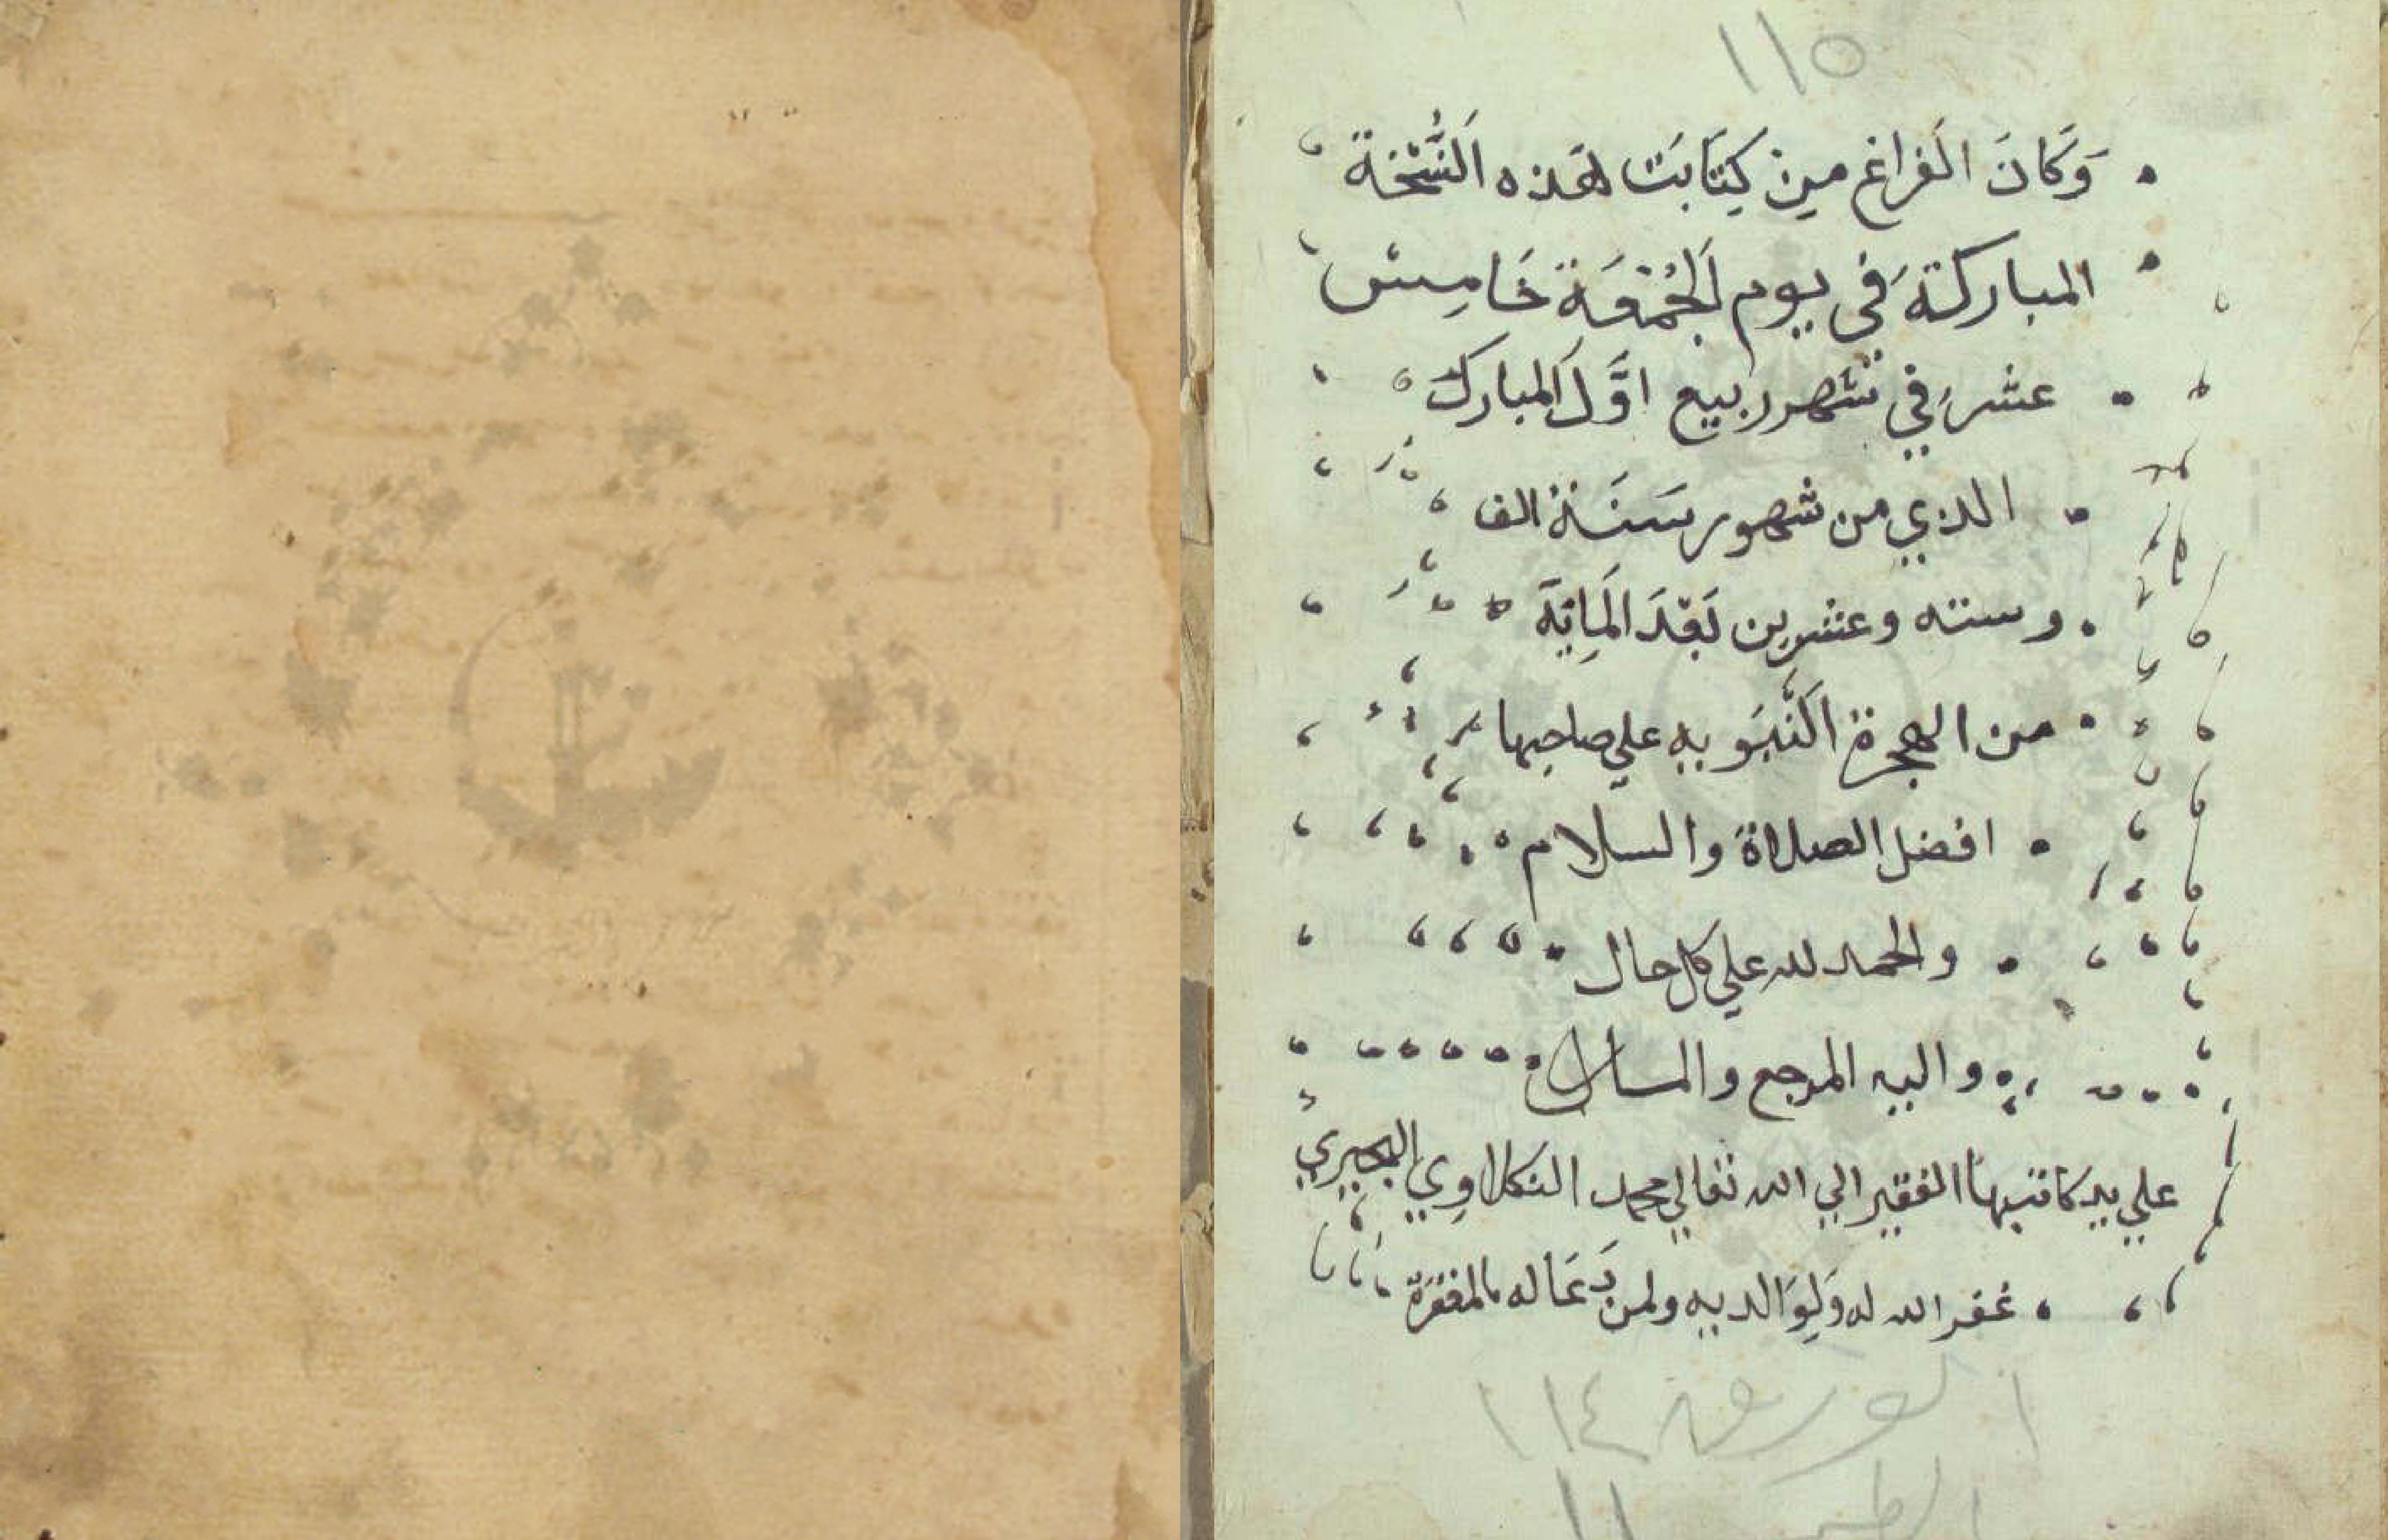 ١١٥
وَكَانَ الَفراغ مِين كِيتَابَت هَذه اَلنُّسْخَة
المباركة فِي يوم اَلجُمْعَة خَامِيس
عشر فِي شهر ربيع اوَّل اَلمبارك
الذي من شهور سَنَة الف
وسته وعشرين بَعْدَ اَلمِايَة
من الهجرة اَلنَّبَويه علي صاحبها
افضل الصلاة والسلام
والحمد لله علي كل حال
واليه المرجع والمسال
علي يد كاتبها الفقير الي الله تعالي محمد النكلاوي البحيري
غفر الله له وَلِوَالديه ولمن دَعَا له بالمغفرَة
الورقه ١١٤